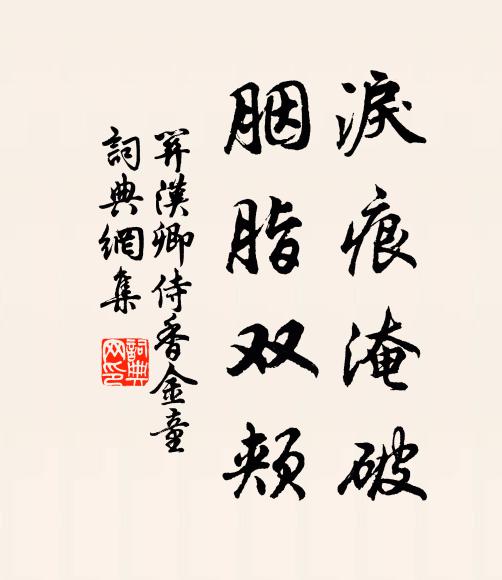 淚痕淹破
胭脂双頰
関漢卿侍香金童
詞典網集
詞典
网印